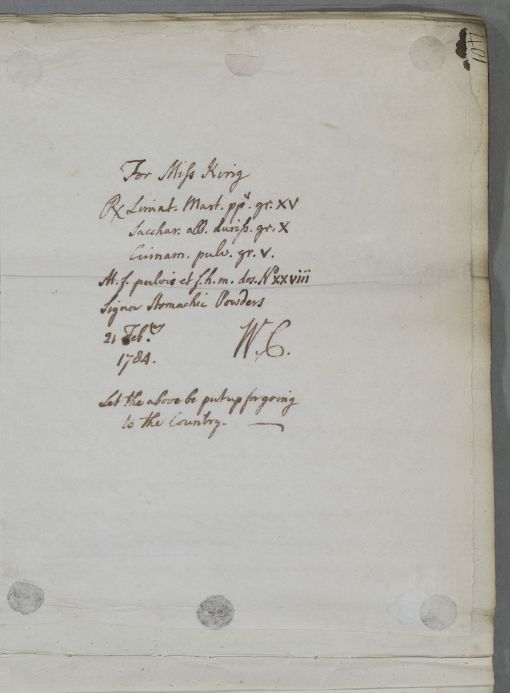 401
For Miss King
Rx Limat. Mart. ppt. gr. XV
Sacchar. alb. duriss. gr. X
Cinnam. pulv. gr. V.
M. f. pulvis et f. h. m. dos. No. XXVIII
Signa Stomachic Powders
21 Feb.ry
1784. W. C.
Let the above be put up for going
to the Country.